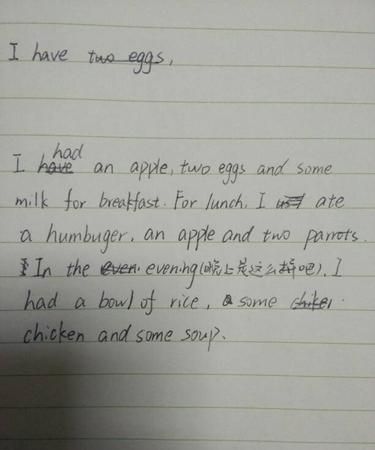 I have two eggs,
I had an apple, two eggs and some
milk for breakfast. For lunch, I ate
a humbuger, an apple and two parrots.
In the evening(晚上是这么拼吧), I
had a bowl of rice, some
chicken and some soup.